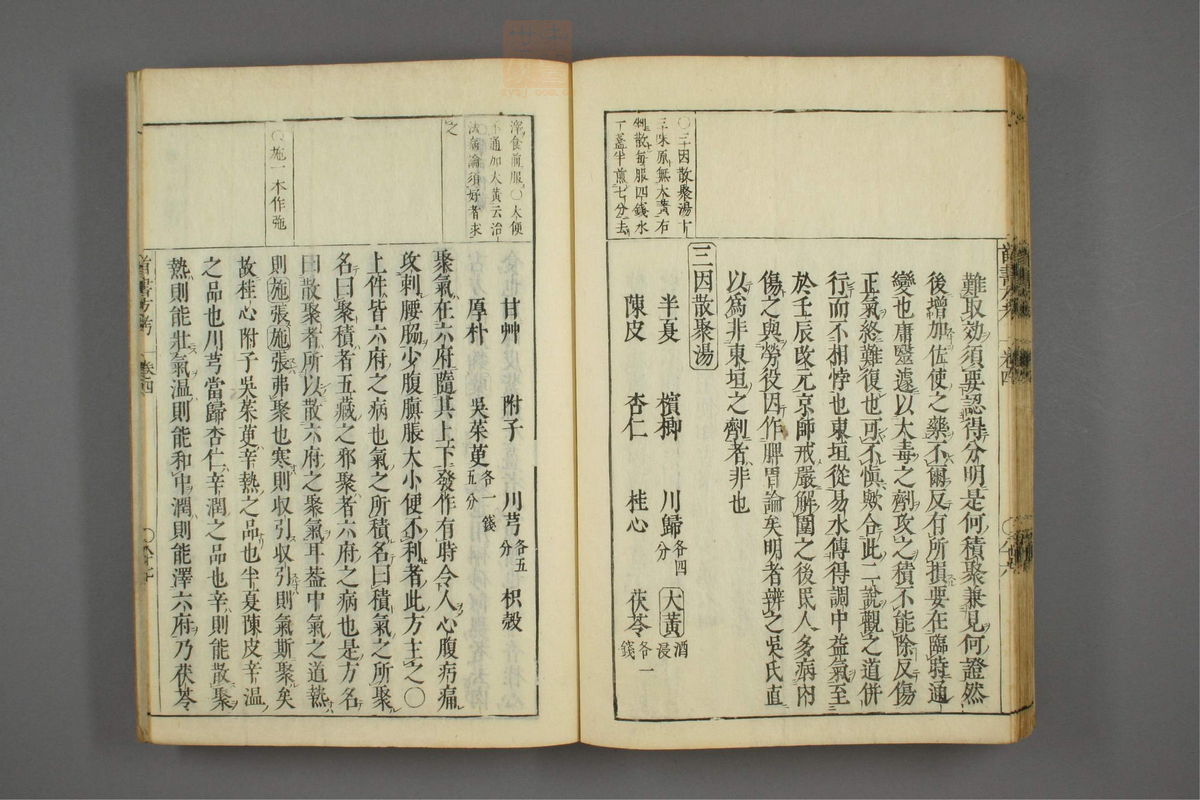 〇三因散聚湯方
三味原無大黃右
剉散每服四錢水
一盞半煎七分去
難取効須要認得分明是何積聚兼見何證然
後增加佐使之藥不爾反有所損要在臨時通
變也庸醫遽以大毒之劑攻之積不能除反傷
正氣終難復也可不愼歟合此二說觀之道併
行而不相悖也東垣從易水傳得調中益氣至
於壬辰改元京師戒嚴解圍之後民人多病內
傷之與勞役因作脾胃論矣明者辨之吳氏直
以爲非東垣之劑者非也
三因散聚湯
半夏 檳榔 川歸各四分 大黃酒浸
陳皮 杏仁 桂心 茯苓各一錢
滓食前服〇大便
不通加大黃云治
之
〇施一本作弛
甘艸 附子 川芎各五分 枳殼
厚朴 吳茱萸各一錢五分
聚氣在六府隨其上下發作有時令人心腹㽲痛
攻刺腰脇少腹䐜脹大小便不利者此方主之〇
上件皆六府之病也氣之所積名曰積氣之所聚
名曰聚積者五藏之邪聚者六府之病也是方名
曰散聚者所以散六府之聚氣耳葢中氣之道熱
則施張施張弗聚也寒則收引收引則氣斯聚矣
故桂心附子吳茱萸辛熱之品也半夏陳皮辛溫
之品也川芎當歸杏仁辛潤之品也辛則能散聚
熱則能壯氣溫則能和中潤則能澤六府乃茯苓
卷四